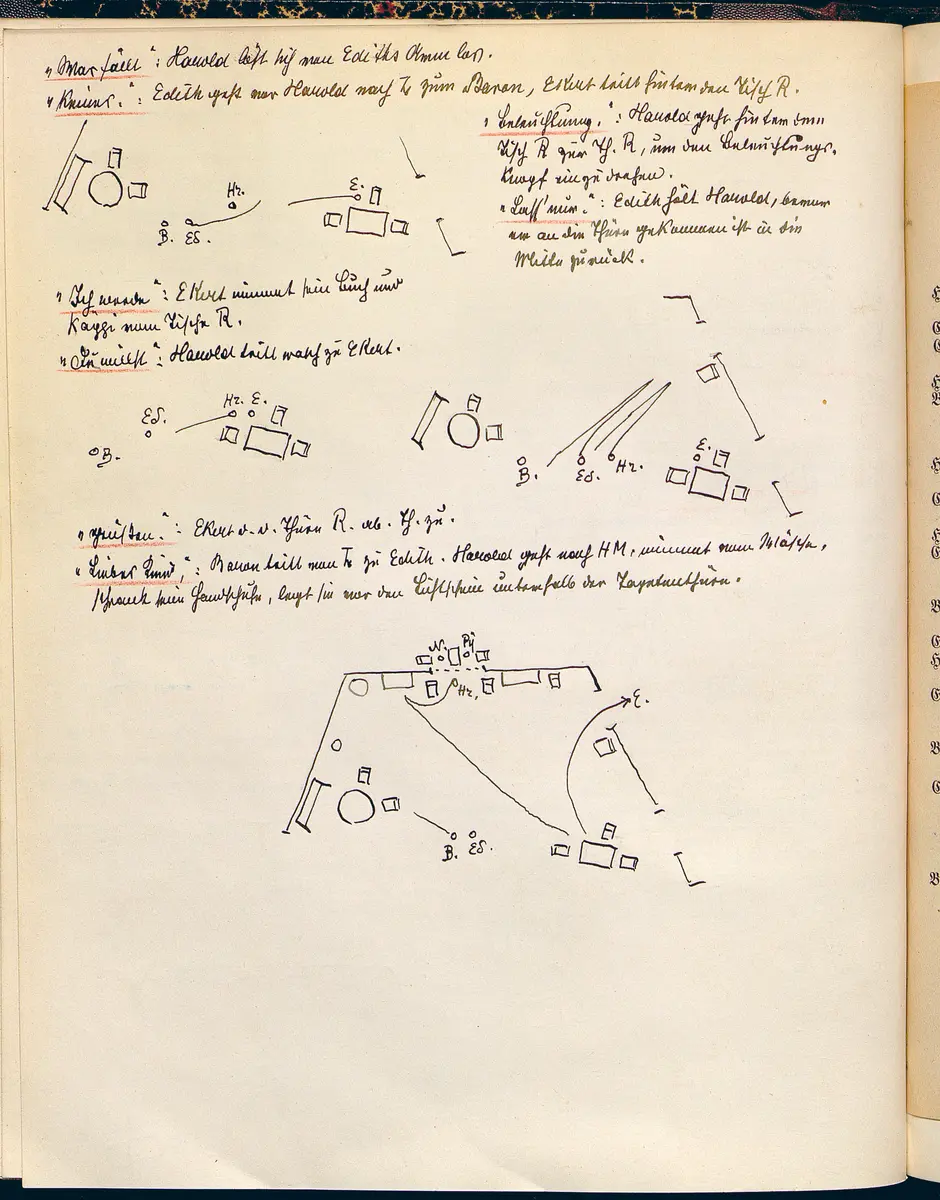 „Was fällt“: Harold löst sich von Ediths Arm los.
„Keines.“: Edith geht vor Harold nach L zum Baron, Ekert tritt hinter den Tisch R.
„Beleuchtung.“: Harold geht hinter dem
Tisch R zur Th. R, um den Beleuchtungs-
knopf einzudrehen.
„Lass' nur.“: Edith hält Harold, bevor
er an die Thüre gekommen ist in die
Mitte zurück.
Hr.
E.
B. Ed.
„Ich werde“: Ekert nimmt sein Buch und
Kappi vom Tische R.
„Du willst“: Harold tritt rasch zu Ekert.
Hr. E.
Ed.
B.
E.
B. Ed. Hr.
„grüßen.“: Ekert d. d. Thüre R. ab. Th. zu.
„Liebes Kind,“: Baron tritt von L zu Edith. Harold geht nach HM, nimmt vom Wäsche-
schrank seine Handschuhe, legt sie vor den Luftschein unterhalb der Tapetenthüre.
N. Py
Hr.
E.
B. Ed.